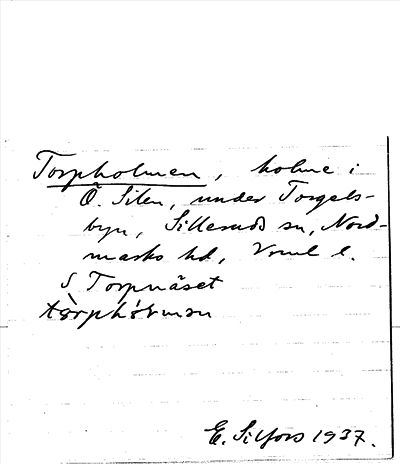 Torpholmen, holme i
Ö. Silen, under Torgels-
byn, Silleruds sn, Nord-
marks hd, Vrml l.
S Torpnäset
E. Silfors 1937.